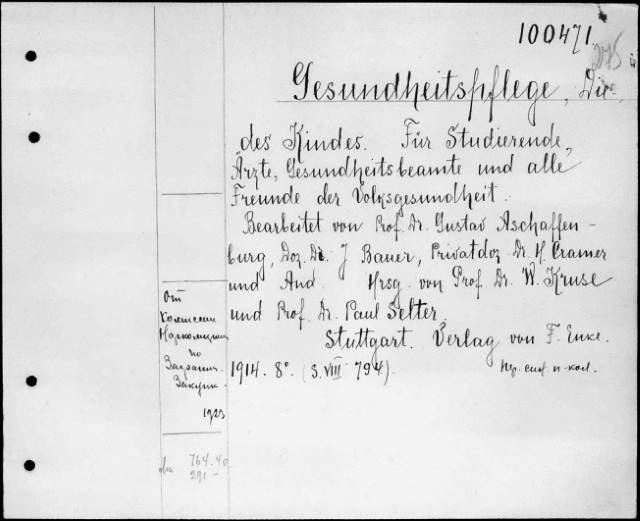 100471
Gesundheitspflege, Die
des Kindes. Für Studierende,
Ärzte, Gesundheitsbeamte und alle
Freunde der Volksgesundheit.
Bearbeitet von Prof. Dr. Gustav Aschaffen-
burg, Doz. Dr. J Bauer, Privatdoz. Dr. H. Cramer
und And. Hrsg. von Prof. Dr. W. Kruse
und Prof. Dr. Paul Selter.
Stuttgart. Verlag von F. Enke.
1914. 8°. (S. VIII 794).
От
Комиссии
по
Загранич.
Закупк.
1923
764.40
291 -